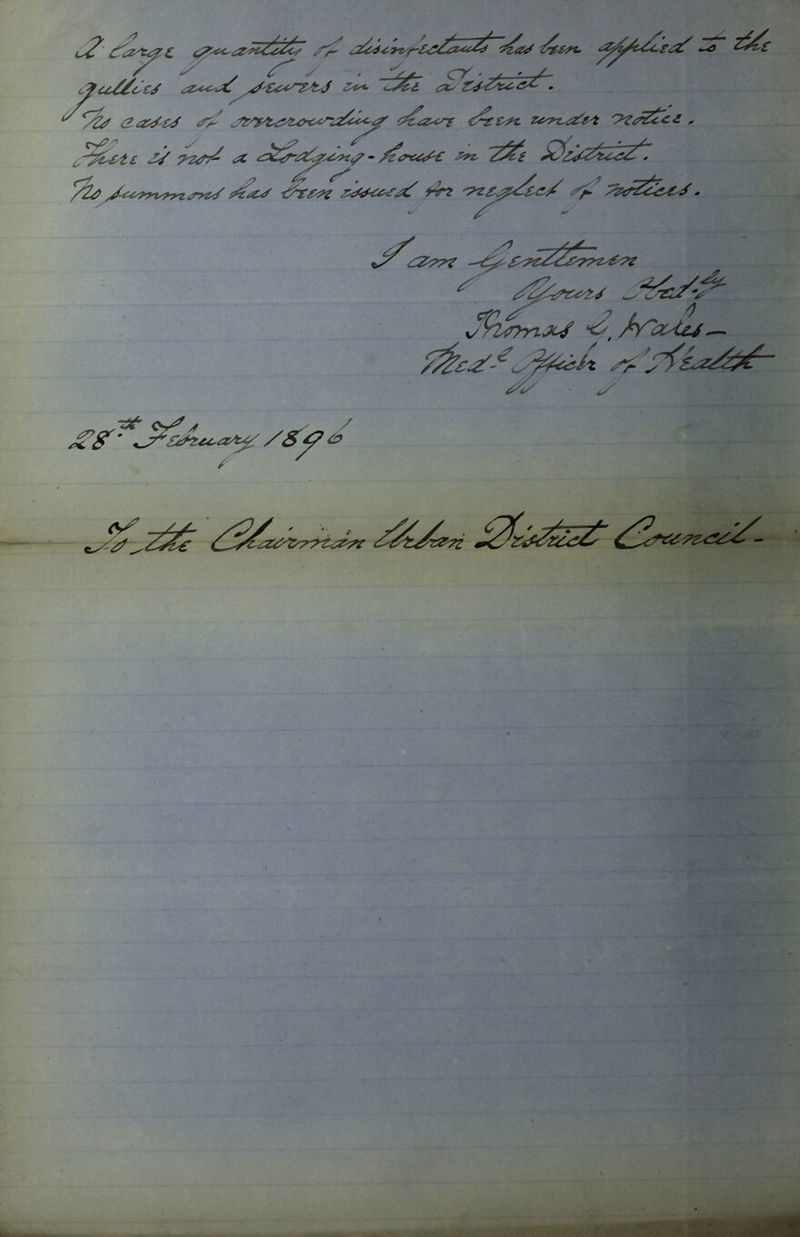 A large quantity of disinfectants has been applied to the
gullies and sewers in the District.
No cases of overcrowding have been under notice.
There is not a Lodging-house in the District.
No summons has been issued for neglect of notices.
I am Gentlemen
Yours
Thomas
Med.l Officer of Health
28th February 1896
To the Chairman Urban District Council -